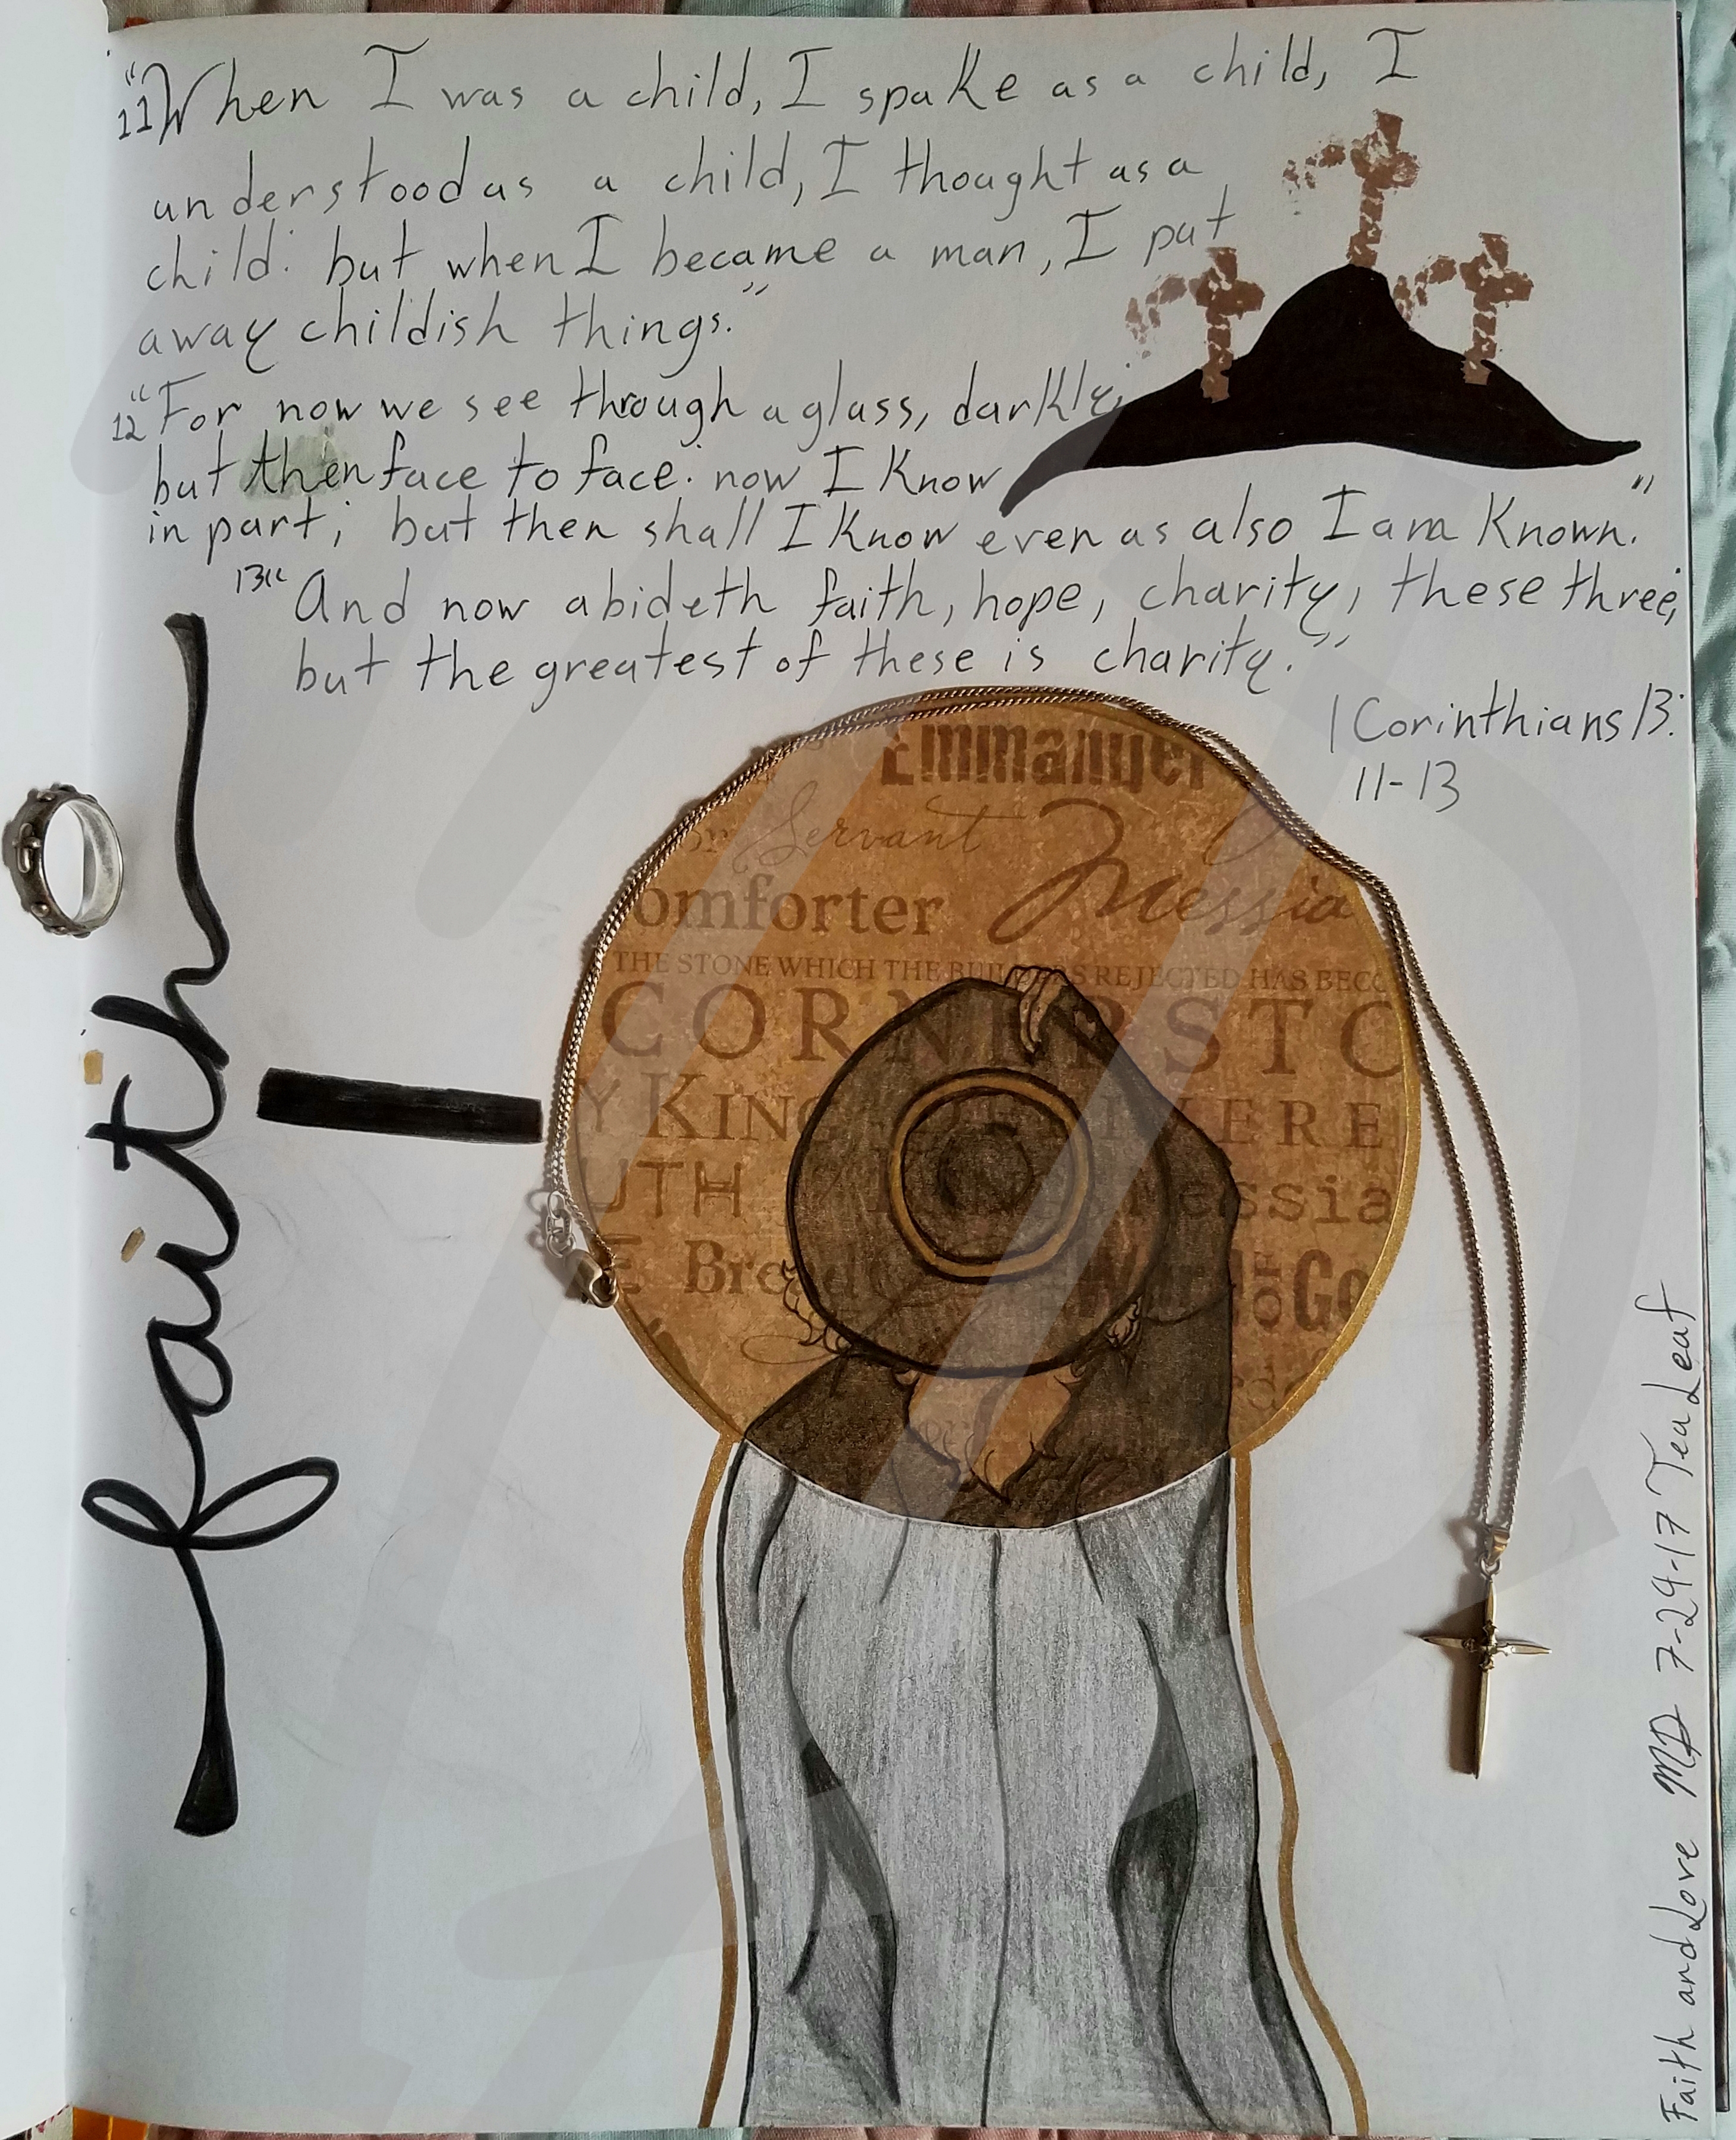 11"When I was a child, I spake as a child, I
understood as a child, I thought as a
child: but when I became a man, I put
away childish things."
12"For now we see through a glass, darkly;
but then face to face: now I know
in part; but then shall I know even as also I am known."
13"And now abideth faith, hope, charity, these three;
but the greatest of these is charity."
1 Corinthians 13:
11-13
faith
Emmanuel
Servant
omforter Messia
THE STONE WHICH THE BUILDERS REJECTED HAS BECO
CORNERSTO
Y KING
ERE
UTH
essia
Bread
Go
Faith and Love MD 7-29-17 TeaLeaf